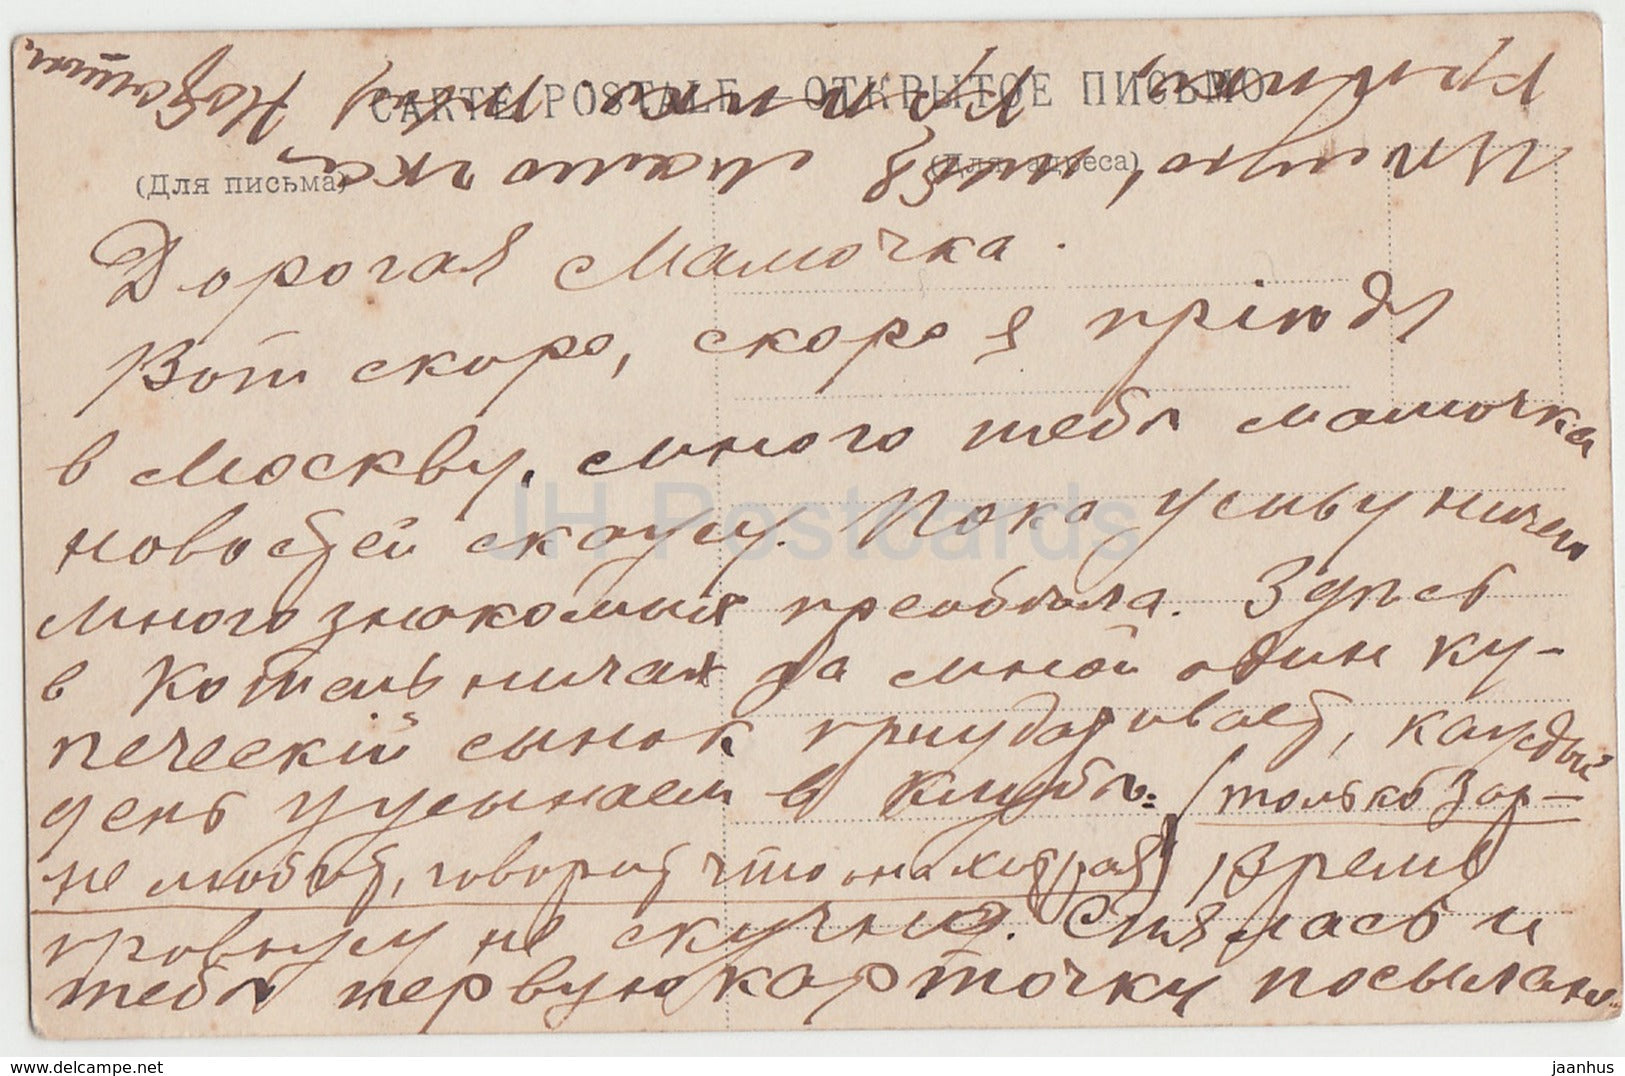 CARTE POSTALE — ОТКРЫТОЕ ПИСЬМО
(Для письма)
(Для адреса)
Дорогая Мамочка.
Вот скоро, скоро я пріюду
в Москву, много тебѣ мамочка
новостей скажу. Пока ничего
много знакомых преобрѣла. Здѣсь
в Котельничах за мной один ку-
печескій сынок приударивает, каждый
день ужинаем в Клубѣ. (только Зор-
не любит, говорит что она хитрая) Время
провожу не скучно. Снялась и
тебѣ первую карточку посылаю.
Цѣлую, мамочка
крѣпко,
JH Postcards
www.delcampe.net
jaanhus